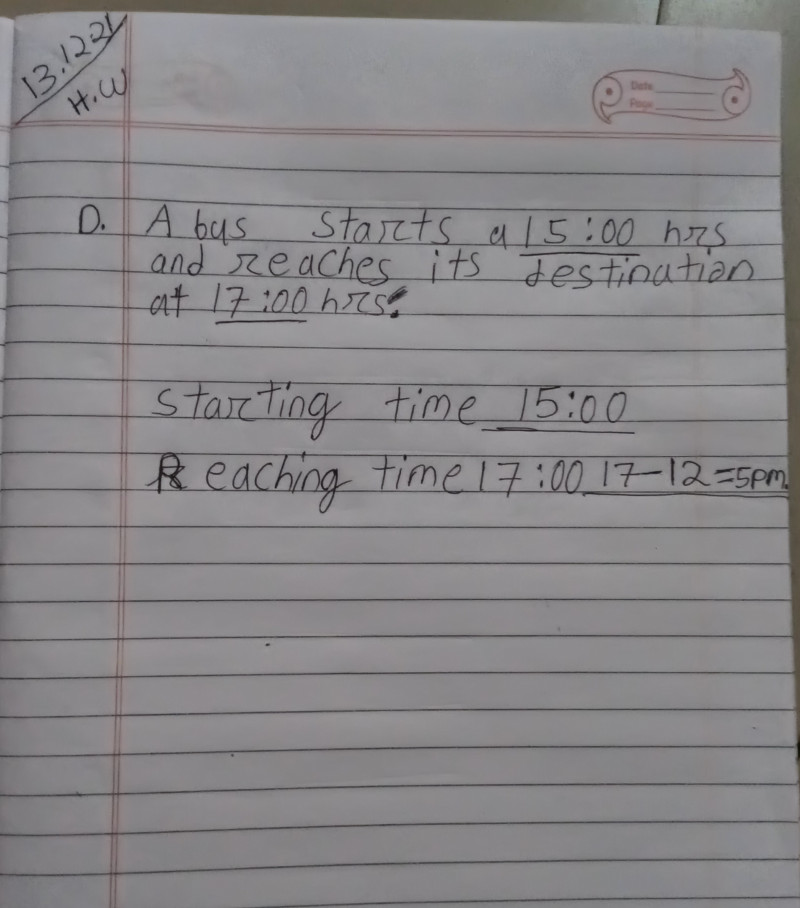 13.12.21
H.W
Date
Page
D. A bus starts a 15:00 hrs
and reaches its destination
at 17:00 hrs.
Starting time 15:00
Reaching time 17:00 17-12=5pm.